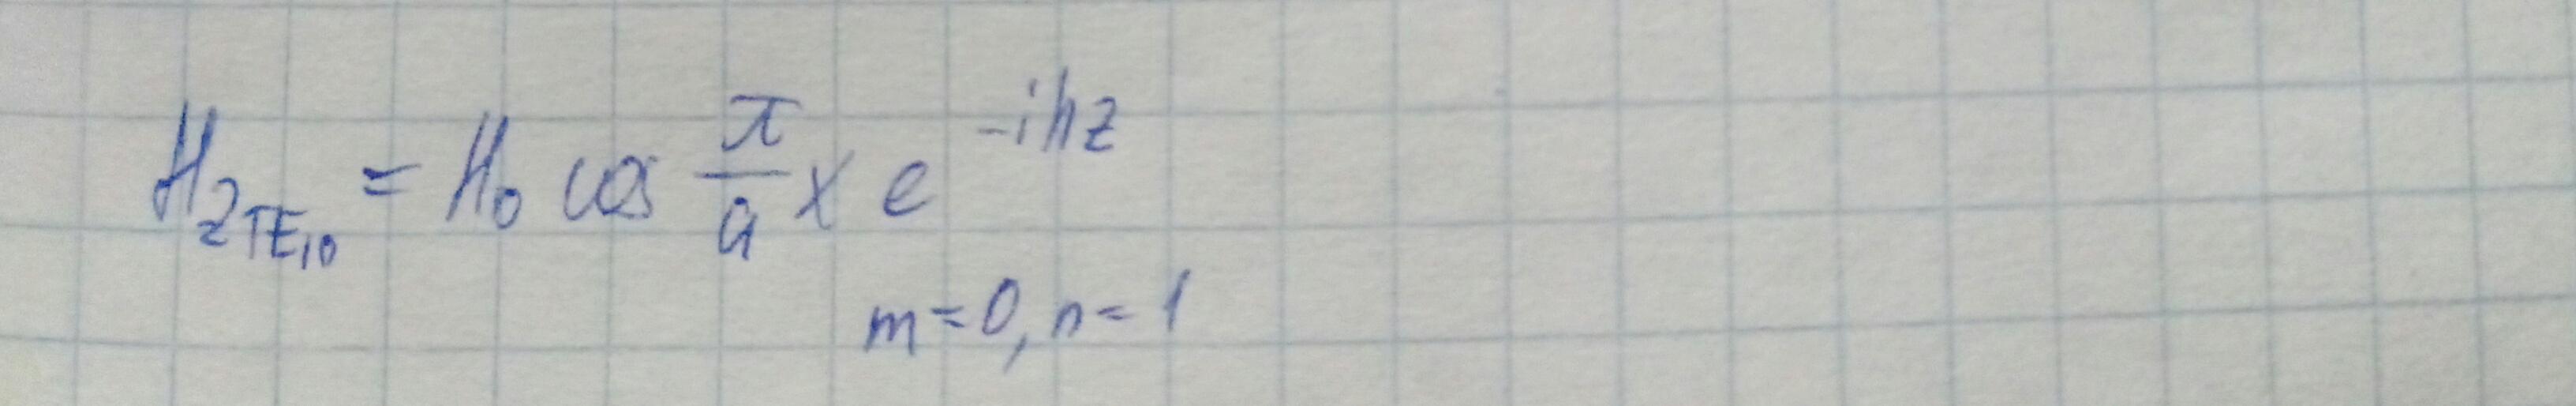 H_{z TE_{10}} = H_0 cos \frac{π}{a} x e^{-ihz}
m=0, n=1